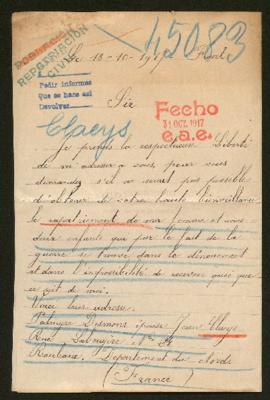 45083
REPOBLACION
CIVIL
Le 18-10-1917
Pedir informes
Que se hace así
Devolver
Sir
Fecho
31 OCT. 1917
e.a.e.
Claeys
Je prends la respectueuse liberté
de m'adresser à vous pour vous
demander s'il ne serait pas possible
d'obtenir de votre haute bienveillance
le rapatriement de ma femme et mes
deux enfants que par le fait de la
guerre se trouve dans le dénuement
et dans l'impossibilité de recevoir quoi que
ce soit de moi.
Voici leur adresse.
Desmons épouse Jean Claeys
Rue
Roubaix. Département du Nord
(France)